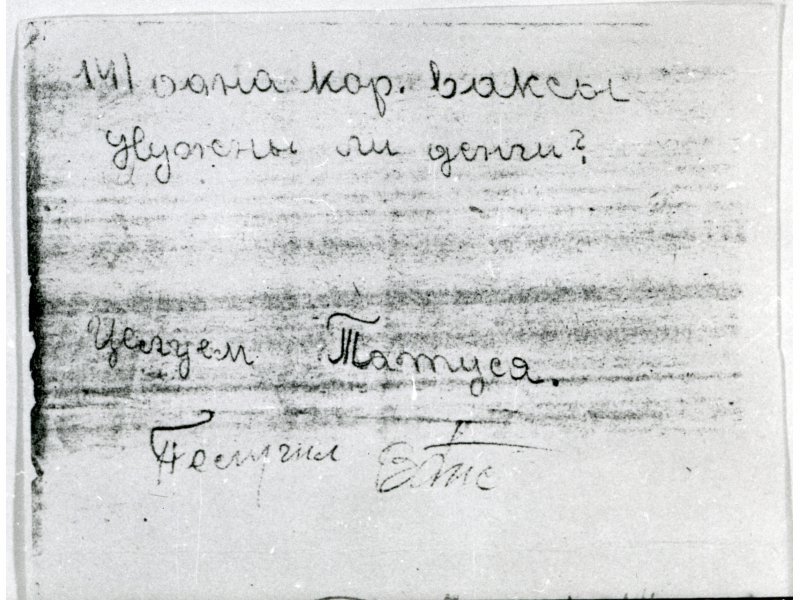 14) одна кор. ваксы
Нужны ли денги?
Целуем Татуся.
Получил